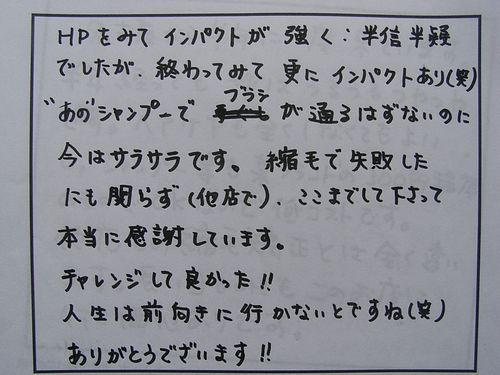 HPをみて インパクトが 強く：半信半疑
でしたが、終わってみて 更に インパクトあり(笑)
"あの"シャンプーで ブラシが 通るはずないのに
今はサラサラです。縮毛で失敗した
にも関らず(他店で)、ここまでして下さって
本当に感謝しています。
チャレンジして良かった!!
人生は前向きに行かないとですね(笑)
ありがとうございます!!